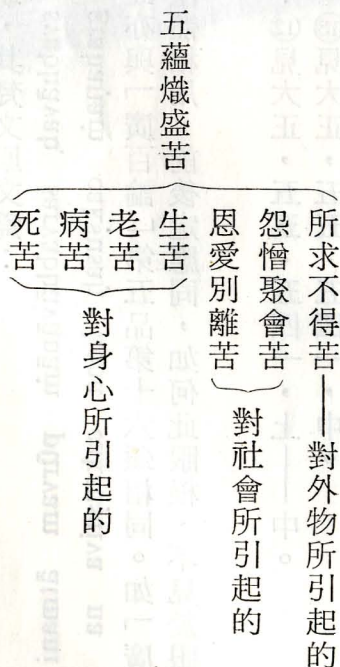 五蘊熾盛苦
所求不得苦—對外物所引起的
怨憎聚會苦
恩愛別離苦
對社會所引起的
生苦
老苦
病苦
死苦
對身心所引起的